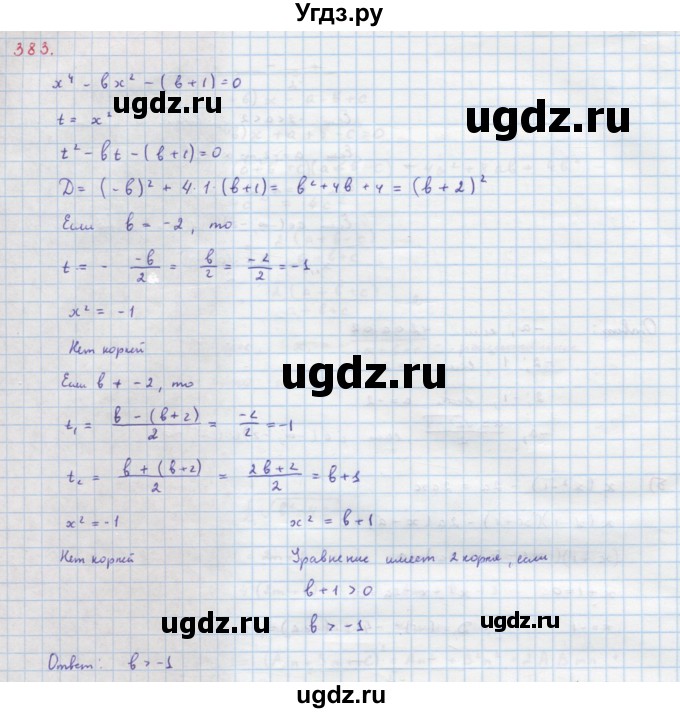 Угдз.ру
383.
x⁴ - bx² - (b+1) = 0
ugdz.ru
ugdz.ru
t = x²
t² - bt - (b+1) = 0
D = (-b)² + 4·1·(b+1) = b² + 4b + 4 = (b+2)²
Если b = -2, то
t = - -b/2 = b/2 = -2/2 = -1
x² = -1
Нет корней
ugdz.ru
Если b ≠ -2, то
t₁ = b - (b+2)/2 = -2/2 = -1
t₂ = b + (b+2)/2 = 2b+2/2 = b+1
x² = -1 x² = b+1
Нет корней Уравнение имеет 2 корня, если
b+1 > 0
ugdz.ru
b > -1
ugdz.ru
Ответ: b > -1
ugdz.ru